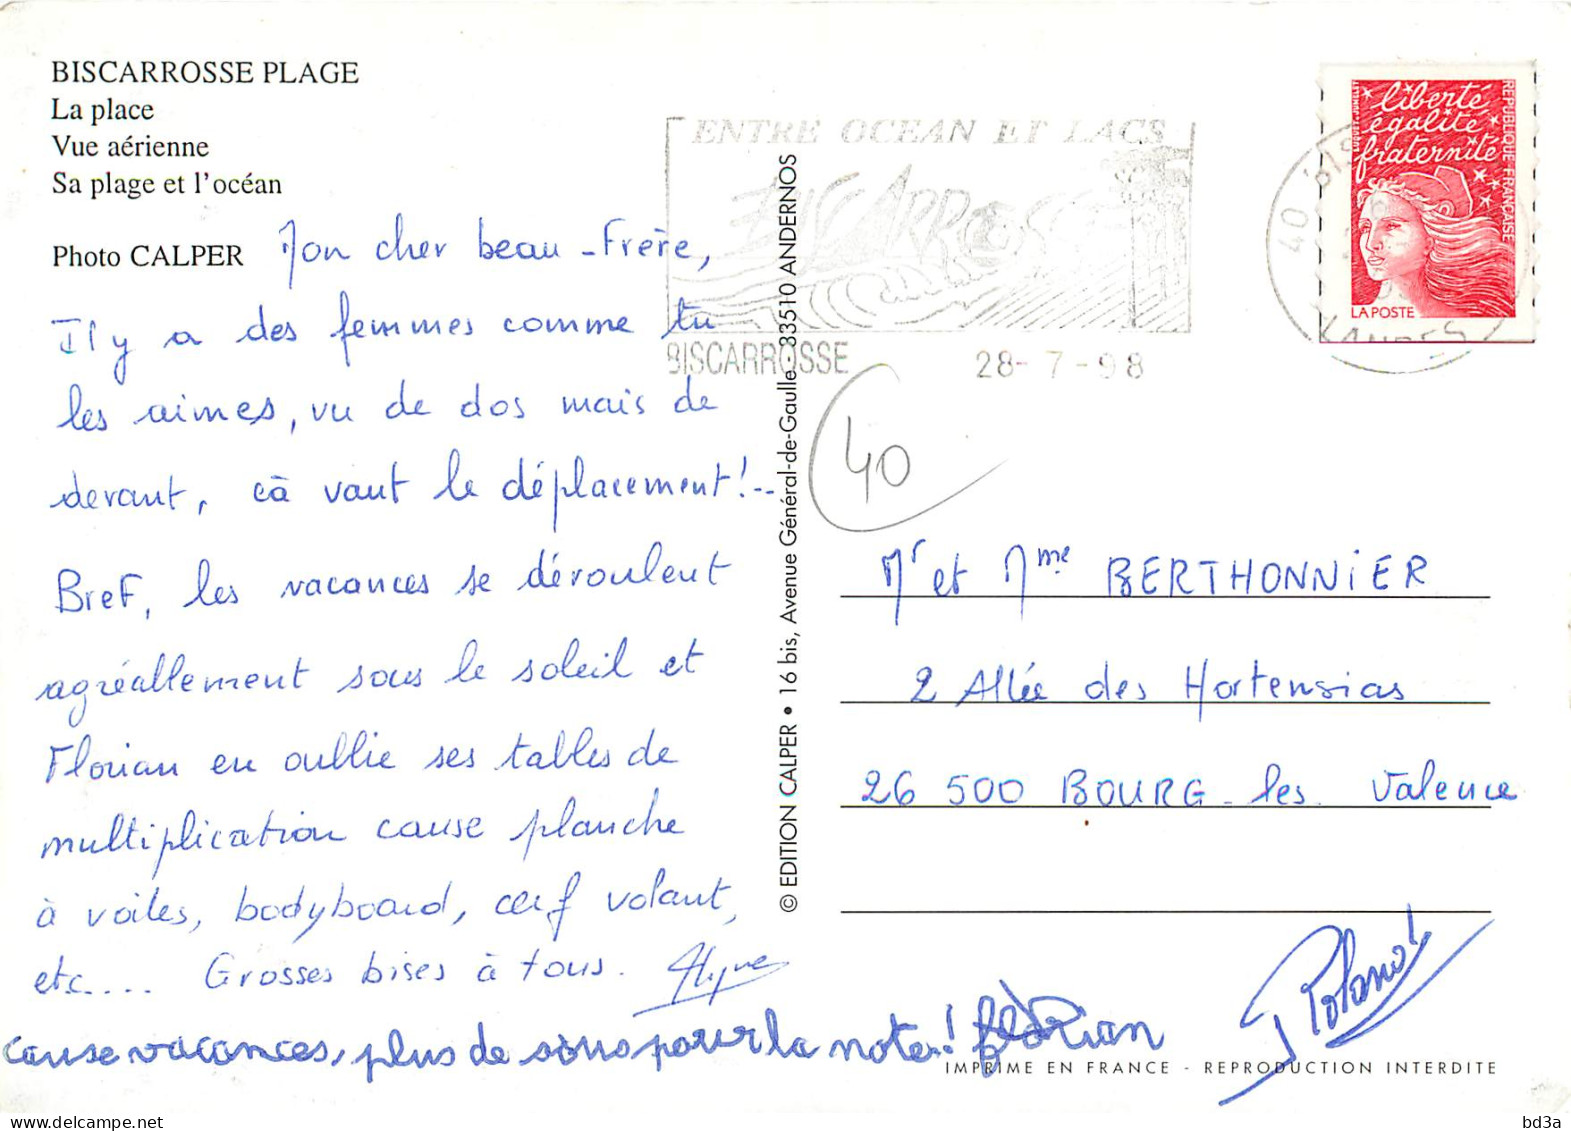 BISCARROSSE PLAGE
La place
Vue aérienne
Sa plage et l'océan
Photo CALPER
Mon cher beau-Frère,
Il y a des femmes comme tu
les aimes, vu de dos mais de
devant, cà vaut le déplacement!..
Bref, les vacances se déroulent
agréallement sous le soleil et
Florian en oullie ses tables de
multiplication cause planche
à voiles, bodyboard, cerf volant,
etc.... Grosses bises à tous.
cause vacances, plus de sous pour la note! florian
ENTRE OCEAN ET LACS
BISCARROSSE
BISCARROSSE 28-7-98
40
liberté
égalité
fraternité
REPUBLIQUE FRANÇAISE
LA POSTE
40
© EDITION CALPER • 16 bis, Avenue Général-de-Gaulle - 33510 ANDERNOS
Mr et Mme BERTHONNIER
2 Allée des Hortensias
26 500 BOURG-les-Valence
IMPRIME EN FRANCE - REPRODUCTION INTERDITE
bd3a